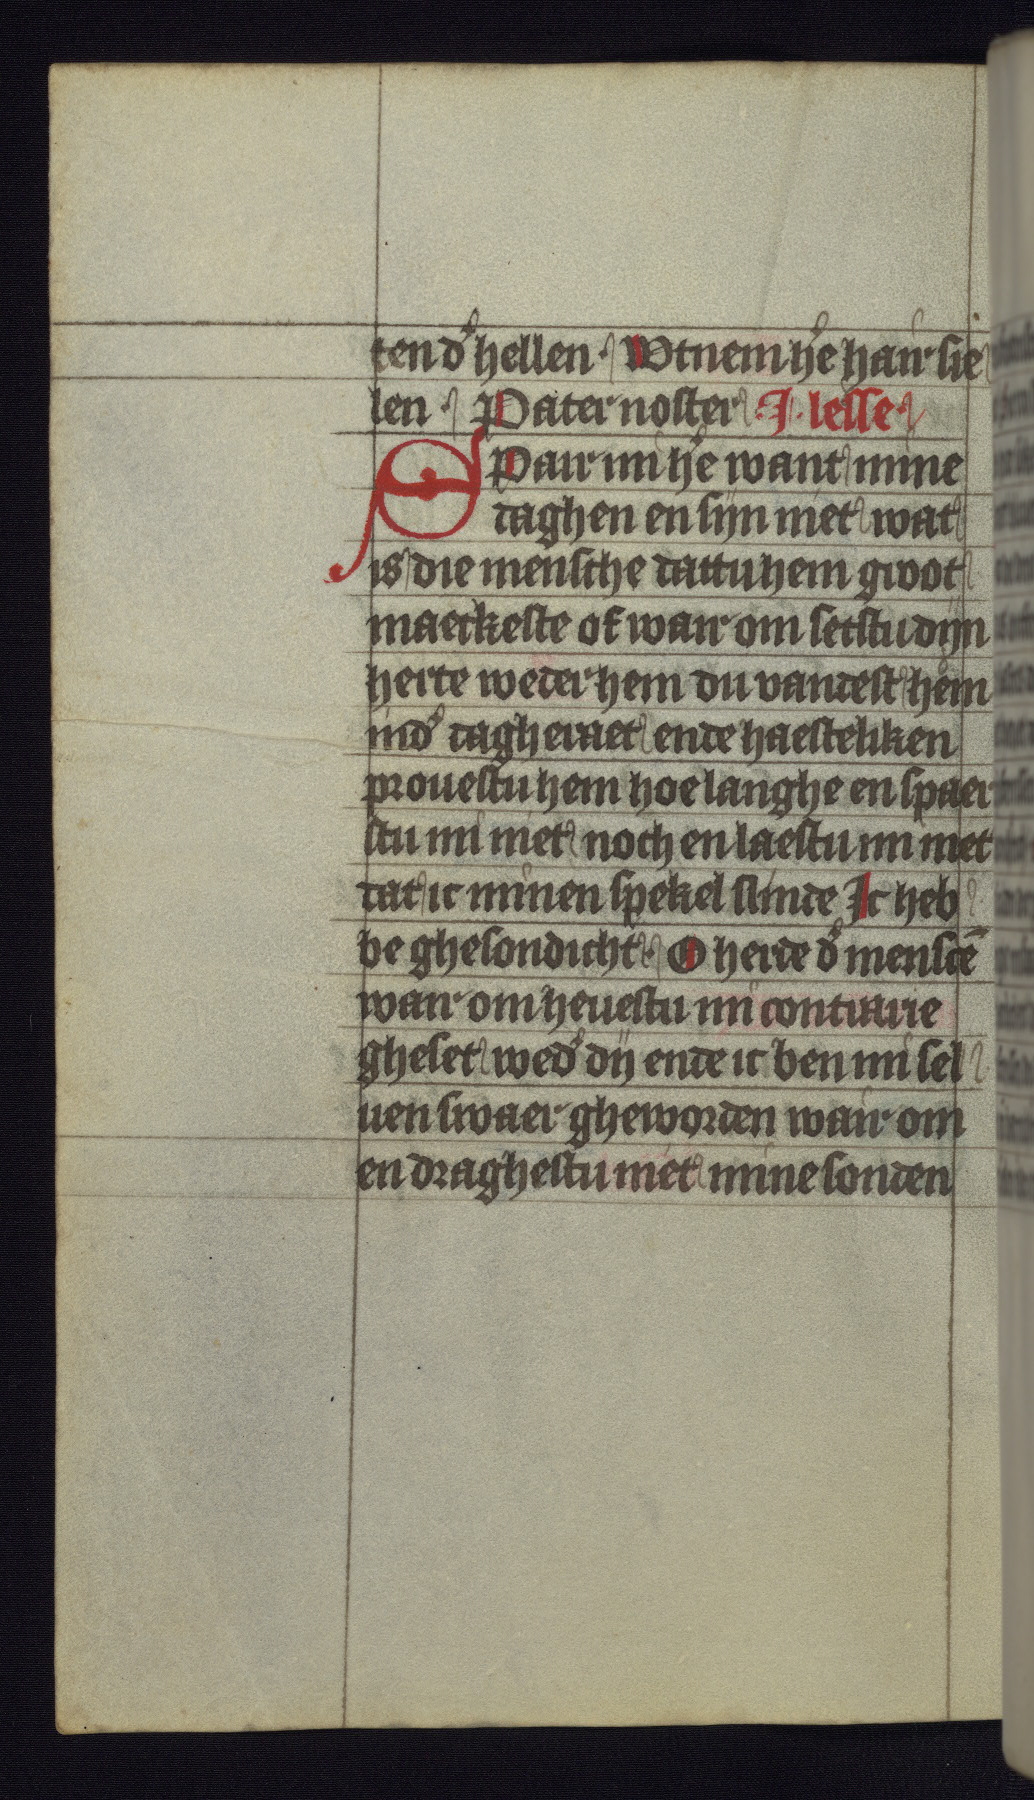 ten d' hellen. Wtnem he͛ haer sie
len. Pater noster .J. lesse.
SPaer mi he͛ want mine
daghen en sijn niet wat
is die mensche dattu hem groot
maeckeste of waer om setstu dijn
herte weder hem du vandest hem
ind' dagheraet ende haesteliken
prouestu hem hoe langhe en spaer
stu mi niet noch en laestu mi niet
dat ic minen spekel slinde Ic heb
be ghesondicht. O herde d' menscē
waer om heuestu mi contrarie
gheset wed' dij ende ic ben mi sel
uen swaer gheworden waer om
en draghestu niet mine sonden